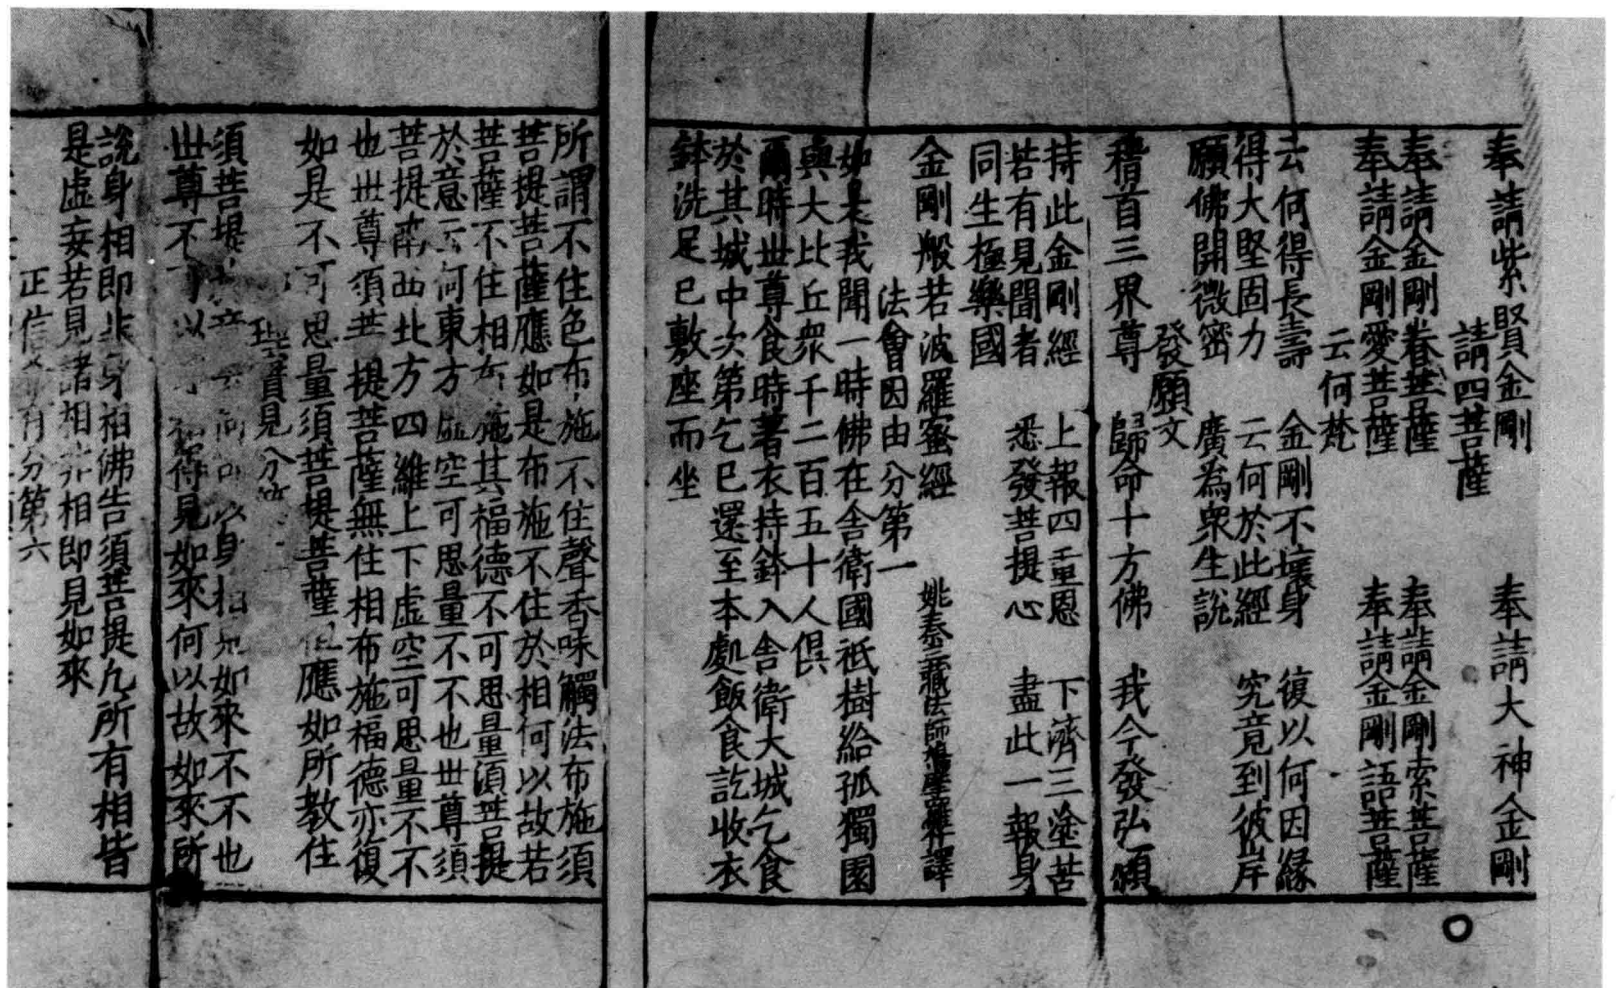 奉請紫賢金剛 奉請大神金剛
請四菩薩
奉請金剛眷菩薩 奉請金剛索菩薩
奉請金剛愛菩薩 奉請金剛語菩薩
云何梵
云何得長壽 金剛不壞身 復以何因緣
得大堅固力 云何於此經 究竟到彼岸
願佛開微密 廣為衆生說
發願文
稽首三界尊 歸命十方佛 我今發弘願
持此金剛經 上報四重恩 下濟三塗苦
若有見聞者 悉發菩提心 盡此一報身
同生極樂國
金剛般若波羅蜜經 姚秦三藏法師鳩摩羅什譯
法會因由分第一
如是我聞一時佛在舍衛國祇樹給孤獨園
與大比丘衆千二百五十人俱
爾時世尊食時著衣持鉢入舍衛大城乞食
於其城中次第乞已還至本處飯食訖收衣
鉢洗足已敷座而坐
所謂不住色布施不住聲香味觸法布施須
菩提菩薩應如是布施不住於相何以故若
菩薩不住相布施其福德不可思量須菩提
於意云何東方虛空可思量不不也世尊須
菩提南西北方四維上下虛空可思量不不
也世尊須菩提菩薩無住相布施福德亦復
如是不可思量須菩提菩薩但應如所教住
見分第
須菩提 身相見如來不不也
世尊不可以 得見如來何以故如來所
說身相即非身相佛告須菩提凡所有相皆
是虛妄若見諸相非相即見如來
正信 有分第六